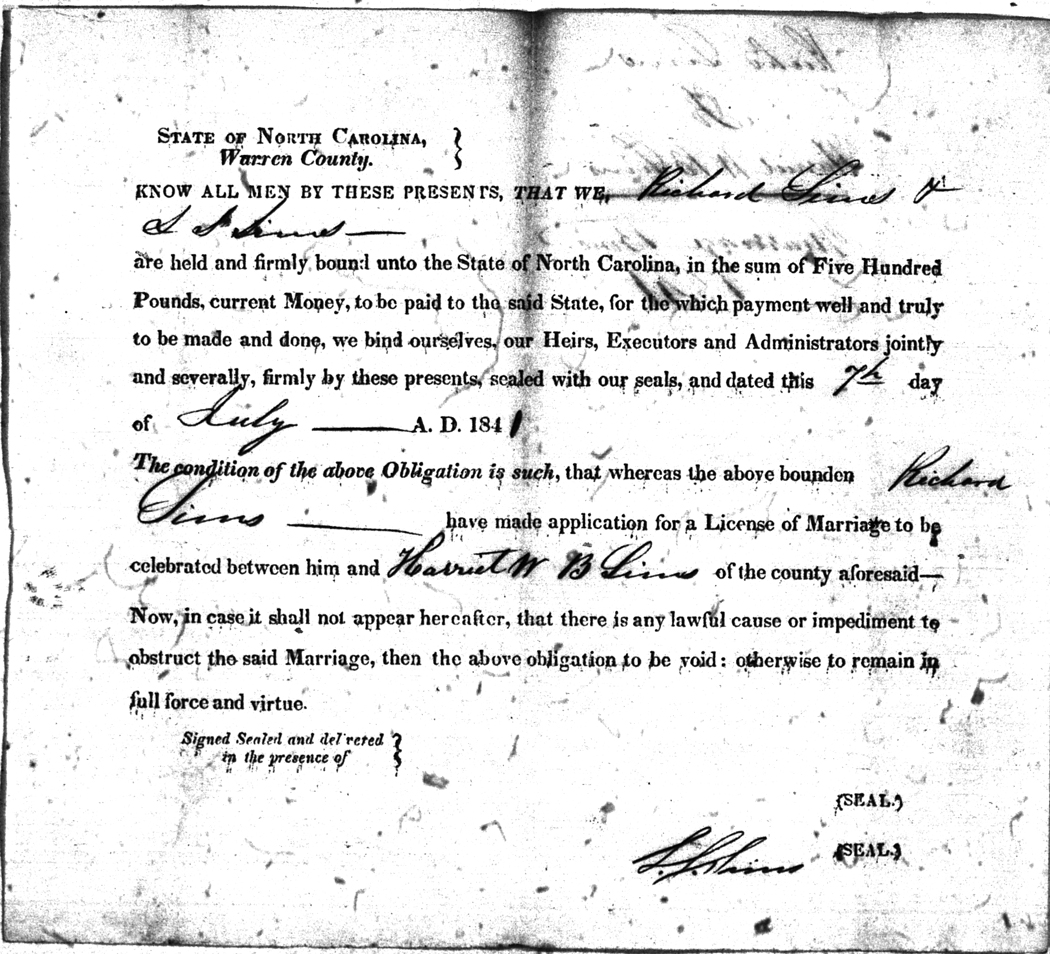 STATE OF NORTH CAROLINA,
Warren County.
KNOW ALL MEN BY THESE PRESENTS, THAT WE, Richard Sims &
Sims
are held and firmly bound unto the State of North Carolina, in the sum of Five Hundred
Pounds, current Money, to be paid to the said State, for the which payment well and truly
to be made and done, we bind ourselves, our Heirs, Executors and Administrators jointly
and severally, firmly by these presents, sealed with our seals, and dated this 7th day
of July A. D. 1841
The condition of the above Obligation is such, that whereas the above bounden Richard
Sims have made application for a License of Marriage to be
celebrated between him and Harriet W B Sims of the county aforesaid—
Now, in case it shall not appear hereafter, that there is any lawful cause or impediment to
obstruct the said Marriage, then the above obligation to be void: otherwise to remain in
full force and virtue.
Signed Sealed and delivered
in the presence of
(SEAL.)
Sims (SEAL.)